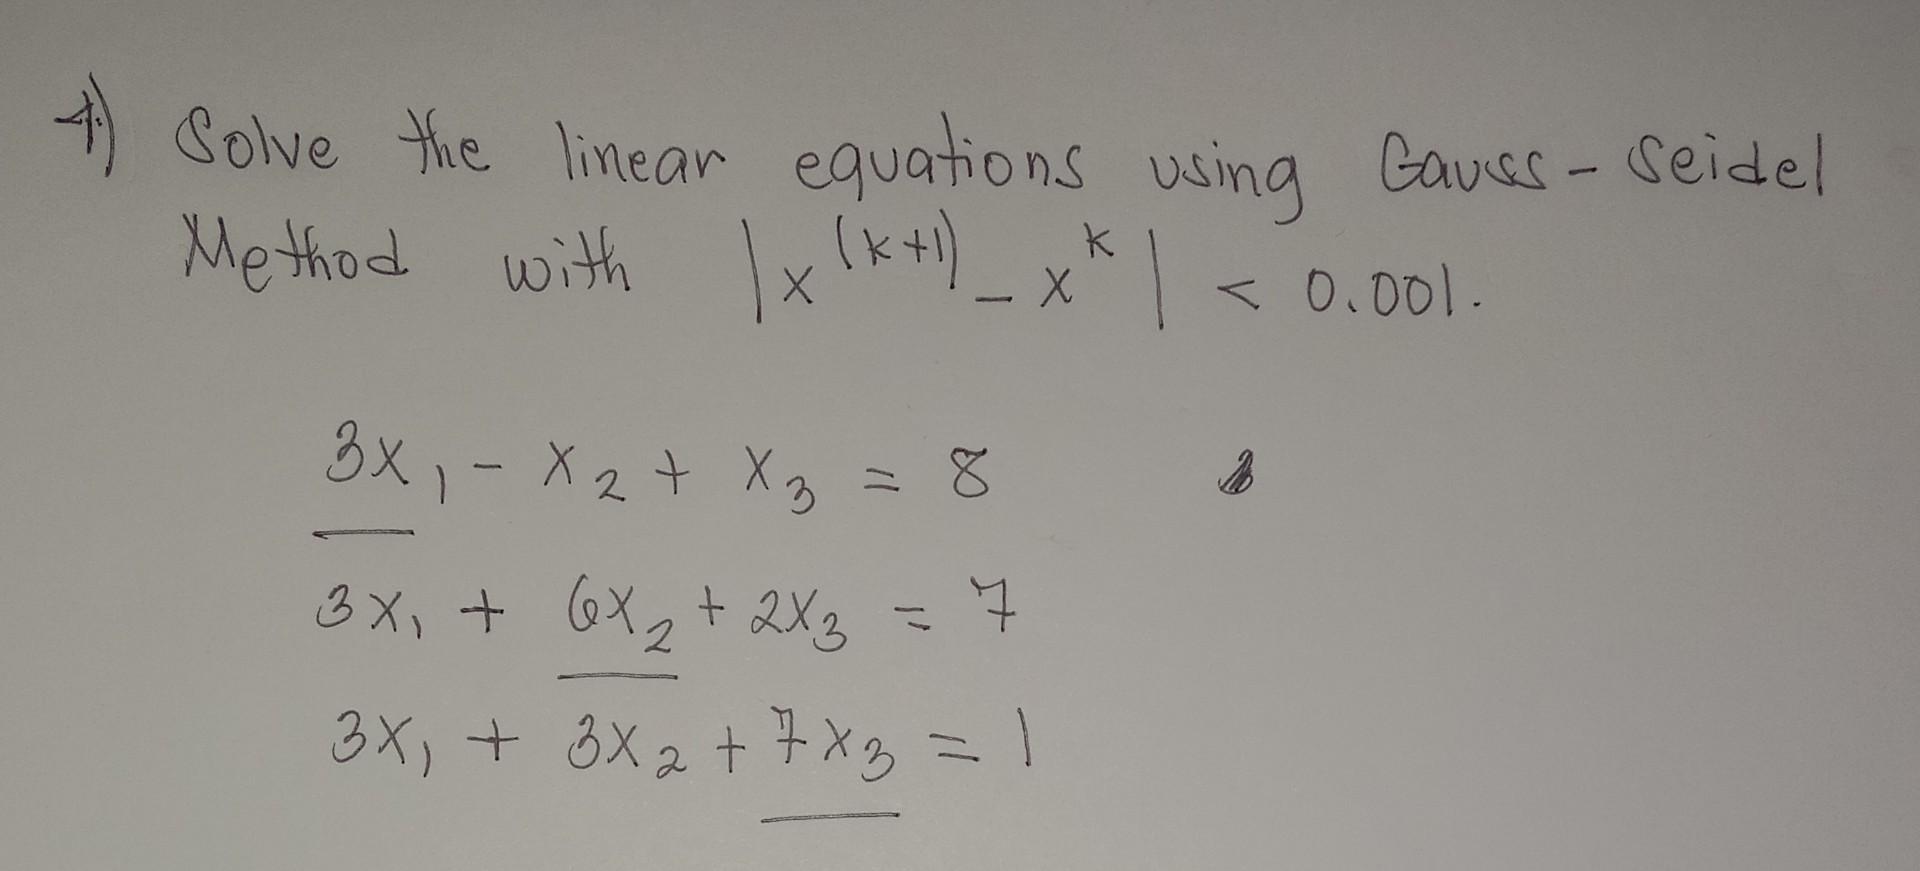 1) Solve the linear equations using Gauss-Seidel
Method with |x^(k+1) - x^k| < 0.001.
3x₁ - x₂ + x₃ = 8
3x₁ + 6x₂ + 2x₃ = 7
3x₁ + 3x₂ + 7x₃ = 1